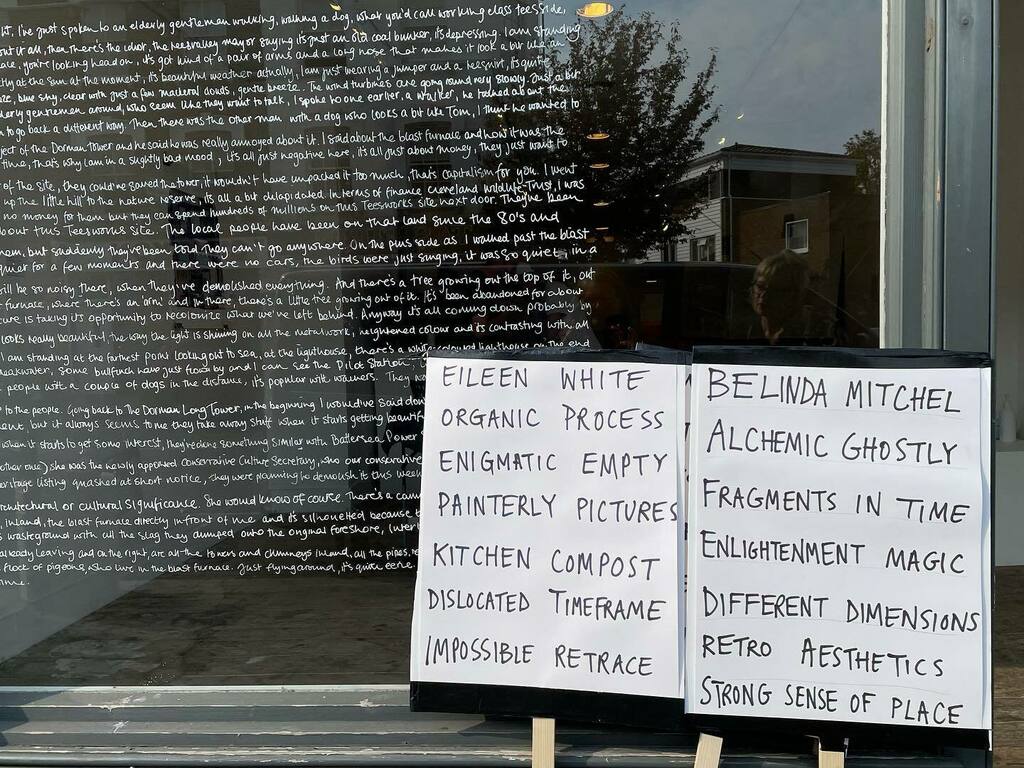 ht, I've just spoken to an elderly gentleman walking, walking a dog, what you'd call working class Teesside,
out it all, then there's the idiot, the Teesvalley mayor saying it's just an old coal bunker, it's depressing. I am standing
you're looking head on, it's got kind of a pair of arms and a long nose that makes it look a bit like an
at the sun at the moment, it's beautiful weather actually, I am just wearing a jumper and a teeshirt, it's quite
blue sky, clear with just a few mackerel clouds, gentle breeze. The wind turbines are going round very slowly. Just a bit
elderly gentlemen around, who seem like they want to talk, I spoke to one earlier, a walker, he talked about the
to go back a different way. Then there was the other man with a dog who looks a bit like Tom, I think he wanted to
ject of the Dorman Tower and he said he was really annoyed about it. I said about the blast furnace and how it was the
time, that's why I am in a slightly bad mood, it's all just negative here, it's all just about money, they just want to
of the site, they could've saved the tower, it wouldn't have impacted it too much, that's capitalism for you. I went
up the little hill to the nature reserve, it's all a bit delapidated. In terms of finance Cleveland Wildlife Trust, I was
no money for them but they can spend hundreds of millions on this Teesworks site next door. They've been
about this Teesworks site. The local people have been on that land since the 80's and
them, but suddenly they've been told they can't go anywhere. On the plus side as I walked past the blast
quiet for a few moments and there were no cars, the birds were just singing, it was so quiet, in a
will be so noisy there, when they've demolished everything. And there's a tree growing out the top of it, out
furnace, where there's an 'arm' and in there, there's a little tree growing out of it. It's been abandoned for about
ure is taking it's opportunity to recolonize what we've left behind. Anyway it's all coming down probably by
looks really beautiful the way the light is shining on all the metalwork, heightened colour and it's contrasting with all
I am standing at the farthest point looking out to sea, at the lighthouse, there's a white coloured lighthouse on the end
breakwater, some bullfinch have just flown by and I can see the Pilot Station,
people with a couple of dogs in the distance, it's popular with walkers. They
to the people. Going back to the Dorman Long Tower, in the beginning I would've said
but it always seems to me they take away stuff when it starts getting
when it starts to get some interest, they've done something similar with Battersea Power
other one) she was the newly appointed Conservative Culture Secretary, who our conservative
eritage listing quashed at short notice, they were planning to demolish it this
architectural or cultural significance. She would know of course. There's a
inland, the blast furnace directly in front of me and it's silhouetted because
wasteground with all the slag they dumped onto the original foreshore,
already leaving and on the right, are all the towers and chimneys inland, all the pipes,
flock of pigeons, who live in the blast furnace. Just flying around, it's quite eerie.
time.
EILEEN WHITE
ORGANIC PROCESS
ENIGMATIC EMPTY
PAINTERLY PICTURES
KITCHEN COMPOST
DISLOCATED TIMEFRAME
IMPOSSIBLE RETRACE
BELINDA MITCHEL
ALCHEMIC GHOSTLY
FRAGMENTS IN TIME
ENLIGHTENMENT MAGIC
DIFFERENT DIMENSIONS
RETRO AESTHETICS
STRONG SENSE OF PLACE